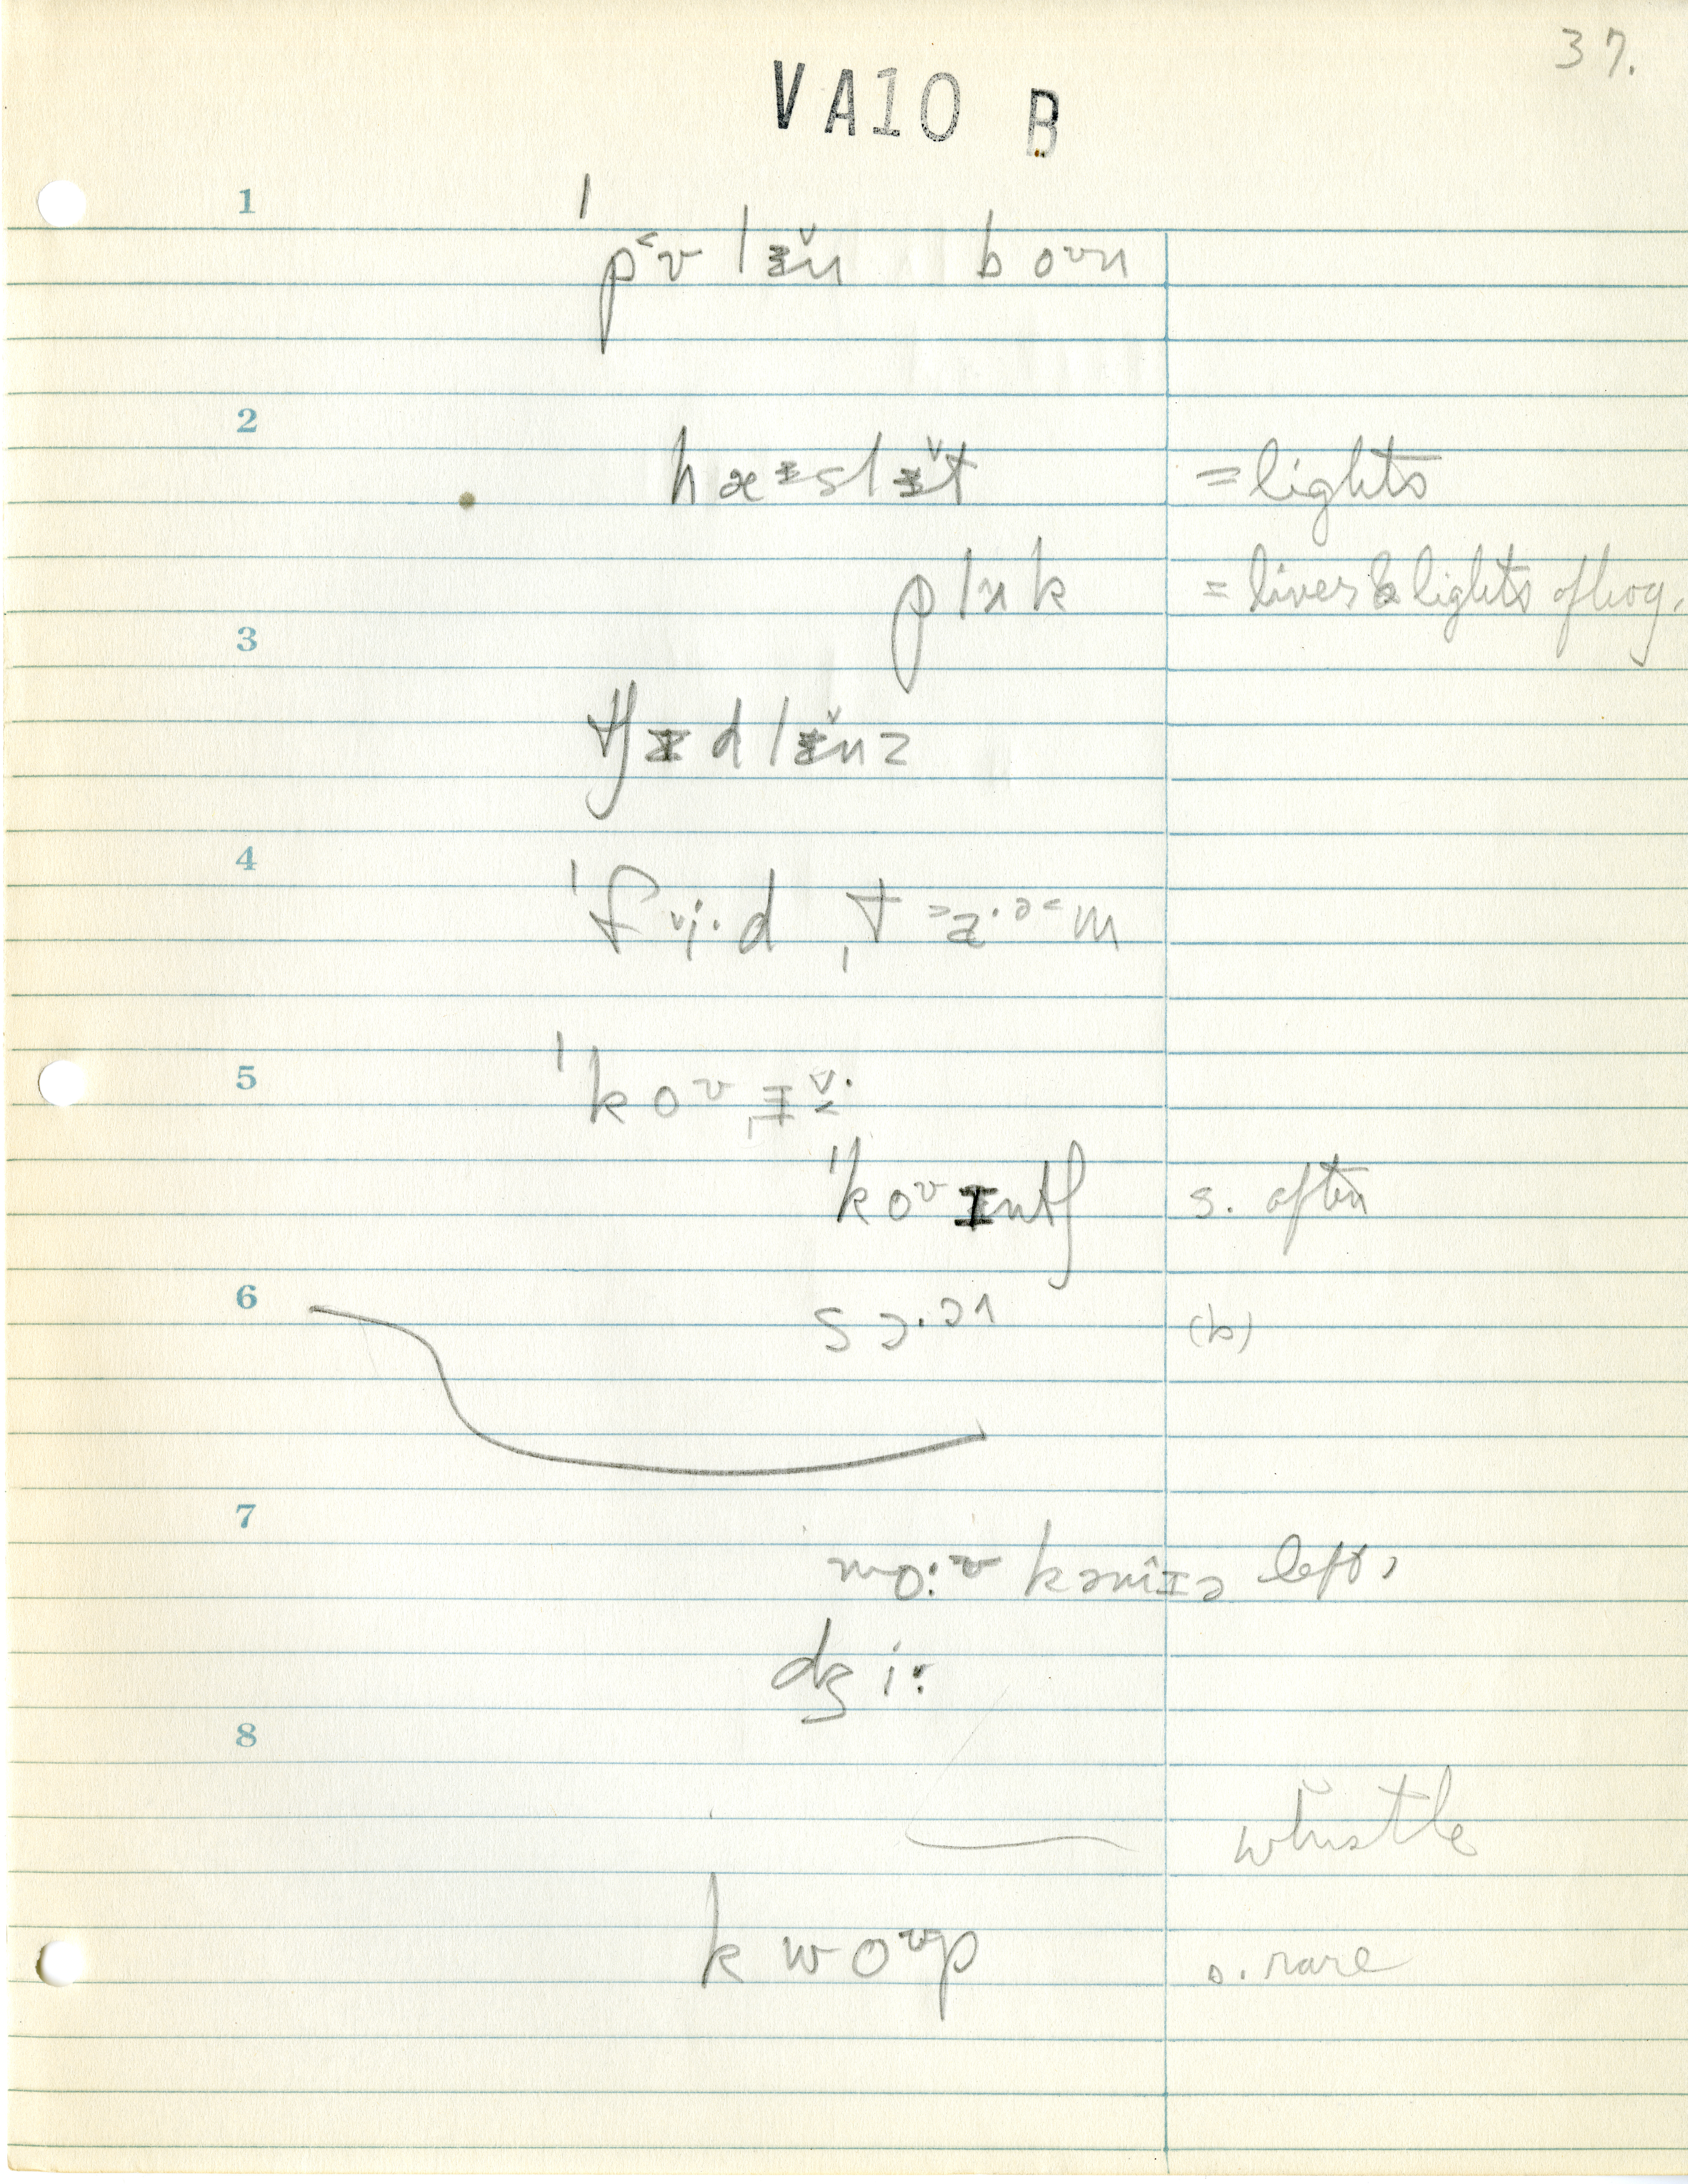 37.
VA10 B
1
ˈpʿʊlɨ̌n boʊn
2
hæᵻslɨ̌t = lights
plʌk = liver & lights of hog.
3
tʃɨdlɨ̌nz
4
ˈfᵛi·d ˌt
5
ˈkoʊˌɨ
ˈkoʊɪntʃ s. often
6
sɔ·ə^ (b)
7
mo:ʊ kəmɪ̂ə left,
dʒi:
8
whistle
kwoʊp s. rare